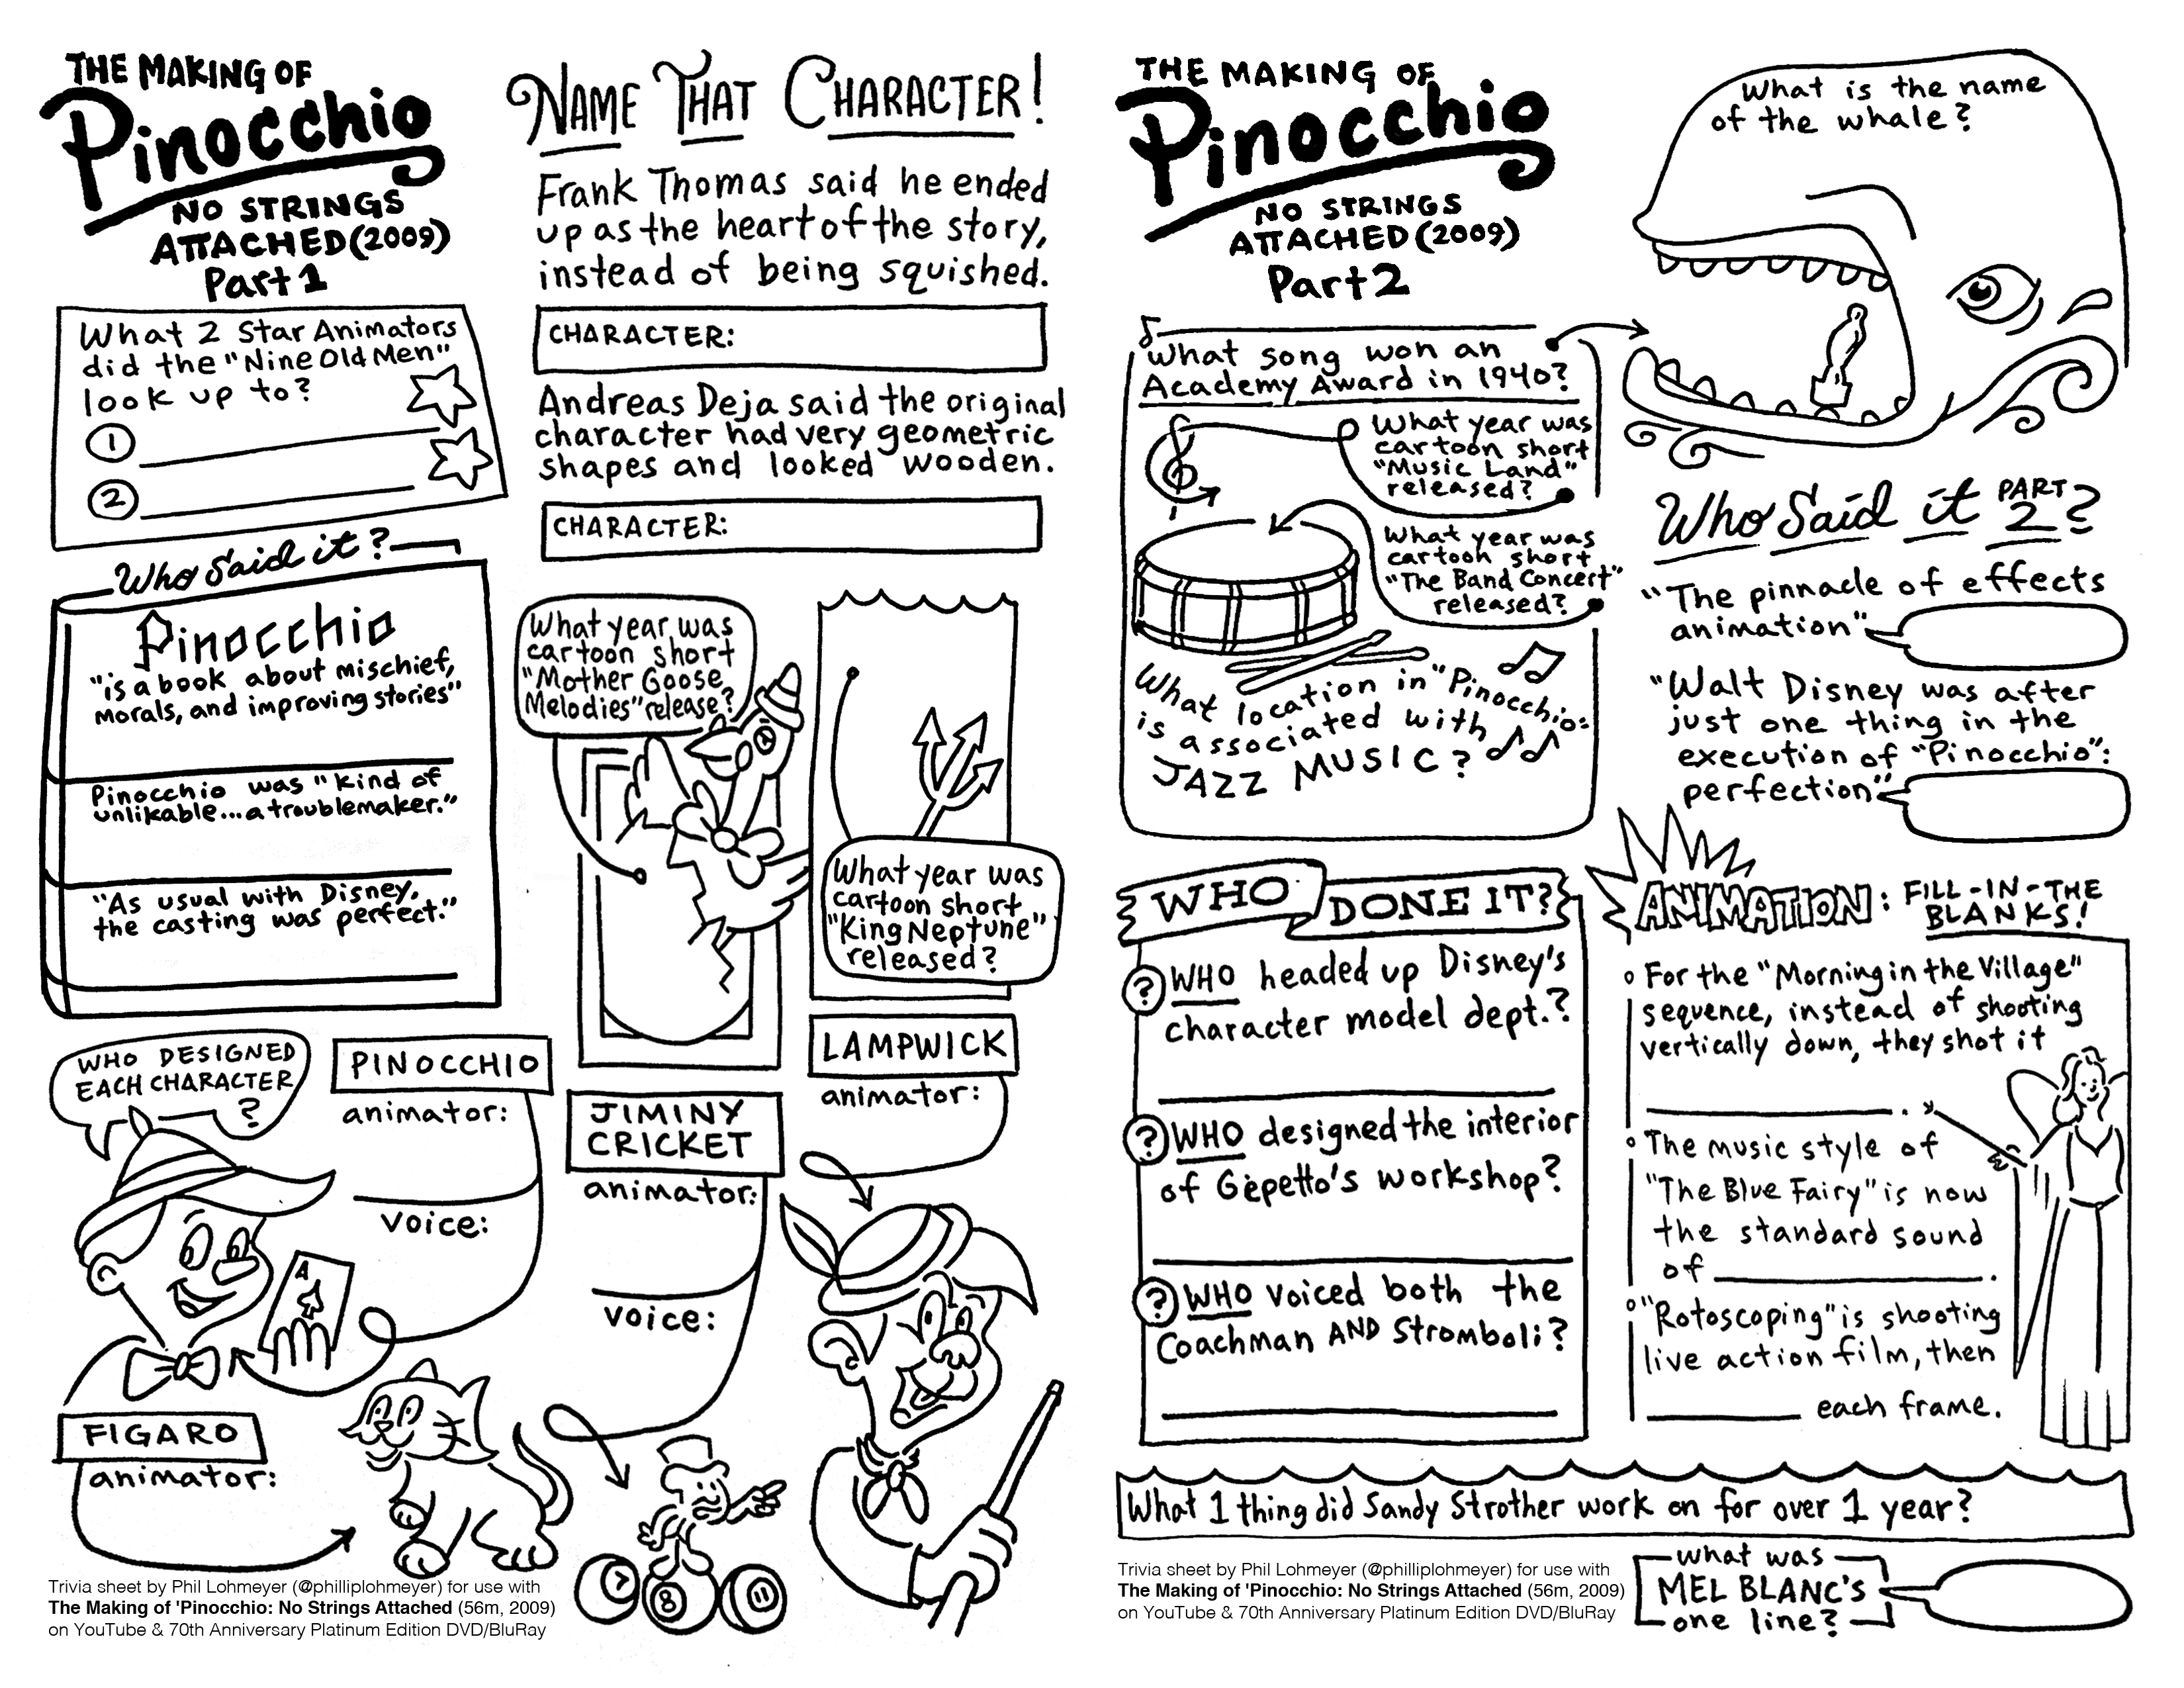 THE MAKING OF
Pinocchio
NO STRINGS
ATTACHED (2009)
Part 1
What 2 Star Animators
did the "Nine Old Men"
look up to?
1
2
Who Said it?
Pinocchio
"is a book about mischief,
morals, and improving stories"
Pinocchio was "kind of
unlikable...a troublemaker."
"As usual with Disney,
the casting was perfect."
NAME THAT CHARACTER!
Frank Thomas said he ended
up as the heart of the story,
instead of being squished.
CHARACTER:
Andreas Deja said the original
character had very geometric
shapes and looked wooden.
CHARACTER:
What year was
cartoon short
"Mother Goose
Melodies" release?
What year was
cartoon short
"King Neptune"
released?
WHO DESIGNED
EACH CHARACTER
?
PINOCCHIO
animator:
voice:
JIMINY
CRICKET
animator:
voice:
LAMPWICK
animator:
A
FIGARO
animator:
7
8
11
Trivia sheet by Phil Lohmeyer (@philliplohmeyer) for use with
The Making of 'Pinocchio: No Strings Attached (56m, 2009)
on YouTube & 70th Anniversary Platinum Edition DVD/BluRay
THE MAKING OF
Pinocchio
NO STRINGS
ATTACHED (2009)
Part 2
What is the name
of the whale?
What song won an
Academy Award in 1940?
What year was
cartoon short
"Music Land"
released?
What year was
cartoon short
"The Band Concert"
released?
What location in "Pinocchio"
is associated with
JAZZ MUSIC?
Who Said it PART
2?
"The pinnacle of effects
animation"
"Walt Disney was after
just one thing in the
execution of "Pinocchio":
perfection"
WHO DONE IT?
? WHO headed up Disney's
character model dept.?
? WHO designed the interior
of Gepetto's workshop?
? WHO voiced both the
Coachman AND Stromboli?
ANIMATION: FILL-IN-THE
BLANKS!
For the "Morning in the Village"
sequence, instead of shooting
vertically down, they shot it
.
The music style of
"The Blue Fairy" is now
the standard sound
of .
"Rotoscoping" is shooting
live action film, then
each frame.
What 1 thing did Sandy Strother work on for over 1 year?
Trivia sheet by Phil Lohmeyer (@philliplohmeyer) for use with
The Making of 'Pinocchio: No Strings Attached (56m, 2009)
on YouTube & 70th Anniversary Platinum Edition DVD/BluRay
what was
MEL BLANC'S
one line?